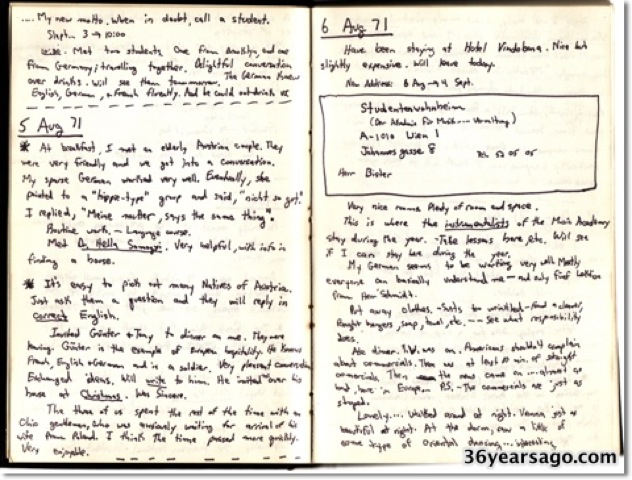 .... My new motto. When in doubt, call a student.
Slept 3 → 10:00
Met two students. One from America, and one
from Germany; travelling together. Delightful conversation
over drinks. Will see them tomorrow. The German knew
English, German, & French fluently. And he could out drink us
5 Aug 71
* At breakfast, I met an elderly Austrian couple. They
were very friendly and we got into a conversation.
My sparse German worked very well. Eventually, she
pointed to a "hippie-type" group and said, "nicht so gut."
I replied, "Meine mutter, says the same thing".
Routine work. — Language course.
Met Dr. Hella. Very helpful, with info in
finding a house.
* It's easy to pick out many Natives of Austria.
Just ask them a question and they will reply in
correct English.
Invited Günter & Tony to dinner on me. They were
leaving. Günter is the example of European hospitality. He knows
French, English & German and is a soldier. Very pleasant conversation
Exchanged ideas. Will write to him. He invited over his
house at Christmas. Was sincere.
The three of us spent the rest of the time with an
Ohio gentleman, who was anxiously waiting for arrival of his
wife from Poland. I think the time passed more quickly.
Very enjoyable.
6 Aug 71
Have been staying at Hotel Vindobona. Nice but
slightly expensive. Will leave today.
New Address: 6 Aug → 4 Sept.
Studentenwohnheim
(Der Akademie für Musik
A-1010 Wien 1
Johannesgasse 8
Tel. 52 05 05
Herr Bieler
Very nice rooms. Plenty of room and space.
This is where the instrumentalists of the Music Academy
stay during the year. - Take lessons here, etc. Will see
if I can stay here during the year.
My German seems to be working very well. Mostly
everyone can basically understand me — and only first Lektion
from Herr Schmidt.
Put away clothes. - Suits to wrinkled - find a cleaner,
Bought hangers, soap, towel, etc. -- See what responsibility
does.
Ate dinner. T.V. was on. Americans shouldn't complain
about commercials. Then was at least 10 min. of straight
commercials. Then the news came on
bad, here in Europe. P.S. - The commercials are just as
stupid.
Lovely.... Walked around at night. Vienna just as
beautiful at night. At the dorm, saw a little of
some type of Oriental dancing... interesting
36yearsago.com